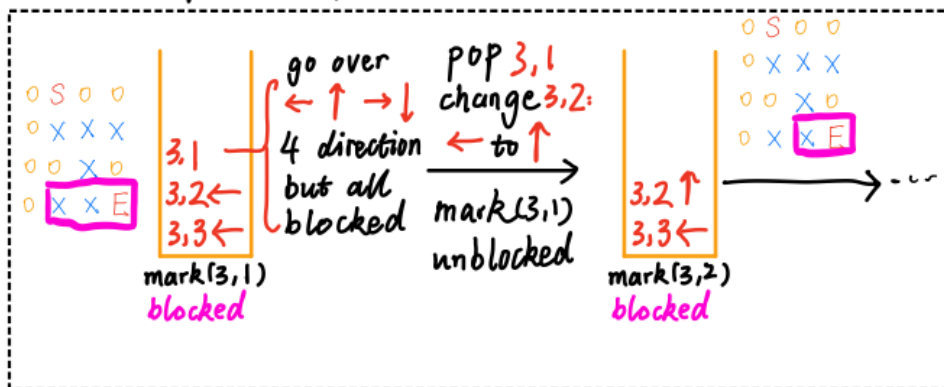 O S O O
O X X X
O O X O
O X X E
3,1
3,2 ←
3,3 ←
mark(3,1)
blocked
go over
← ↑ → ↓
4 direction
but all
blocked
pop 3,1
change 3,2:
← to ↑
mark(3,1)
unblocked
3,2 ↑
3,3 ←
mark(3,2)
blocked
O S O O
O X X X
O O X O
O X X E
...